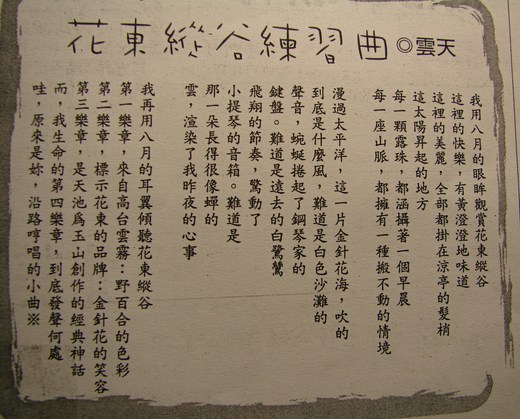 花東縱谷練習曲◎雲天
我用八月的眼眸觀賞花東縱谷
這裡的快樂，有黃澄澄地味道
這裡的美麗，全部都掛在涼亭的髮梢
這太陽昇起的地方
每一顆露珠，都涵攝著一個早晨
每一座山脈，都擁有一種搬不動的情境
漫過太平洋，這一片金針花海，吹的
到底是什麼風，難道是白色沙灘的
聲音，蜿蜒捲起了鋼琴家的
鍵盤。難道是遠去的白鷺鷥
飛翔的節奏，驚動了
小提琴的音箱。難道是
那一朵長得很像蟬的
雲，渲染了我昨夜的心事
我再用八月的耳翼傾聽花東縱谷
第一樂章，來自高台雲霧：野百合的色彩
第二樂章，標示花東的品牌：金針花的笑容
第三樂章，是天池為玉山創作的經典神話
而，我生命的第四樂章，到底發聲何處
哇，原來是妳，沿路哼唱的小曲※